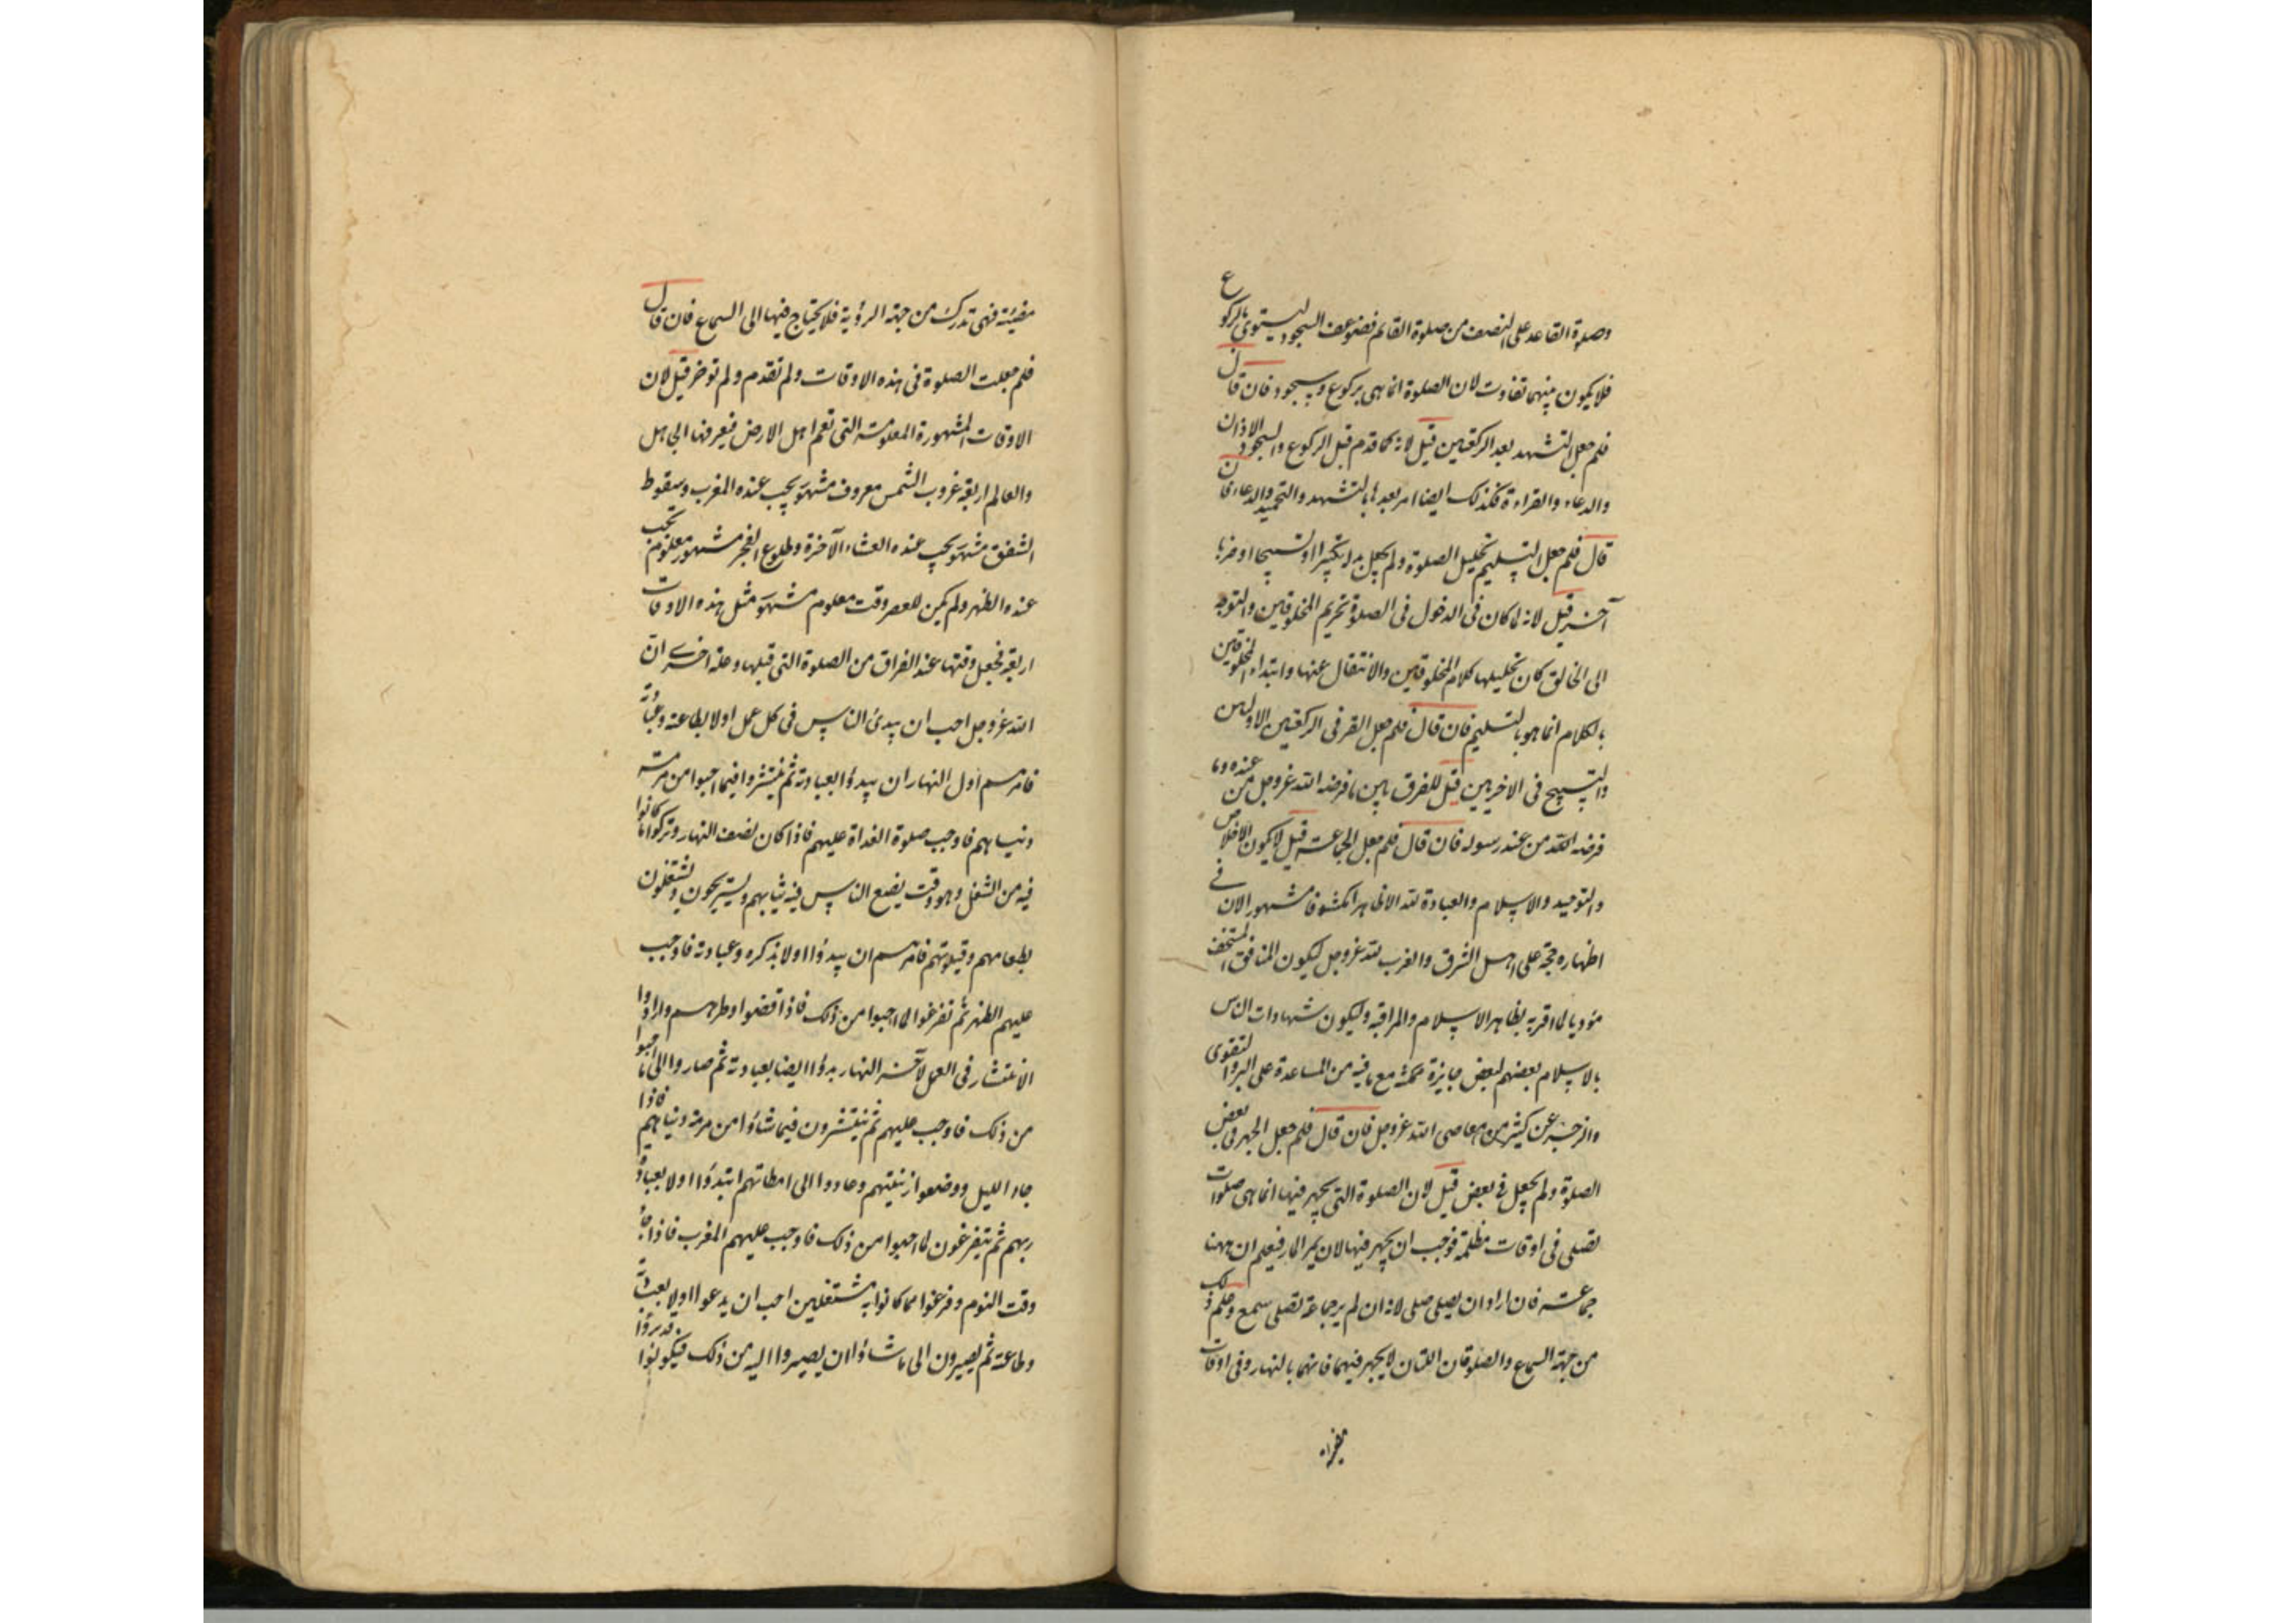 وصلوة القاعد على النصف من صلوة القائم فضوعف السجود ليستوى بالركوع
فلا يكون بينهما تفاوت لان الصلوة انما هى بركوع وسجود فان قال
فلم جعل التشهد بعد الركعتين قيل لانه كما قدم قبل الركوع والسجود الاذان
والدعاء والقراءة فكذلك ايضا امر بعدها بالتشهد والتحميد والدعاء فان
قال فلم جعل التسليم تحليل الصلوة ولم يجعل بدلها تكبيرا او تسبيحا او ضربا
آخر قيل لانه لما كان فى الدخول فى الصلوة تحريم المخلوقين والتوجه
الى الخالق كان تحليلها كلام المخلوقين والانتقال عنها وابتداء المخلوقين
بالكلام انما هو بالتسليم فان قال فلم جعل القر فى الركعتين الاولين
والتسبيح فى الاخريين قيل للفرق بين ما فرضه الله عزوجل من عنده وما
فرضه الله من عند رسوله فان قال فلم جعل الجماعة قيل لا يكون الاخلاص
والتوحيد والاسلام والعبادة لله الا ظاهرا مكشوفا مشهورا لان فى
اظهاره حجة على اهل الشرق والغرب لله عزوجل ليكون المنافق المستخف
مؤديا لما اقر به بظاهر الاسلام والمراقبة وليكون شهادات الناس
بالاسلام بعضهم لبعض جايزة ممكنة مع ما فيه من المساعدة على البر والتقوى
والزجر عن كثير من معاصى الله عزوجل فان قال فلم جعل الجهر فى بعض
الصلوة ولم يجعل فى بعض قيل لان الصلوة التى يجهر فيها انما هى صلوات
تصلى فى اوقات مظلمة فوجب ان يجهر فيها لان يمر المار فيعلم ان ههنا
جماعة فان اراد ان يصلى صلى لانه ان لم ير جماعة تصلى سمع وعلم ذلك
من جهة السماع والصلوتان اللتان لا يجهر فيهما فانهما بالنهار وفى اوقات
مضيئة
مضيئة فهى تدرك من جهة الرؤية فلا يحتاج فيها الى السماع فان قال
فلم جعلت الصلوة فى هذه الاوقات ولم تقدم ولم توخر قيل لان
الاوقات المشهورة المعلومة التى تعم اهل الارض فيعرفها الجاهل
والعالم اربعة غروب الشمس معروف مشهور يجب عنده المغرب وسقوط
الشفق مشهور يجب عنده العشاء الآخرة وطلوع الفجر مشهور معلوم يجب
عنده الظهر ولم يكن للعصر وقت معلوم مشهور مثل هذه الاوقات
اربعة فجعل وقتها عند الفراق من الصلوة التى قبلها وعلة اخرى ان
الله عزوجل احب ان يبدئ الناس فى كل عمل اولا بطاعته وعبادته
فامرهم اول النهار ان يبدؤا بعبادته ثم ينتشروا فيما احبوا من مرمة
دنياهم فاوجب صلوة الغداة عليهم فاذا كان نصف النهار وتركوا ما كانوا
فيه من الشغل وهو وقت يضع الناس فيه ثيابهم ويستريحون ويشتغلون
بطعامهم وقيلولتهم فامرهم ان يبدؤا اولا بذكره وعبادته فاوجب
عليهم الظهر ثم تفرغوا لما احبوا من ذلك فاذا قضوا وطرهم وارادوا
الانتشار فى العمل لآخر النهار بدؤا ايضا بعبادته ثم صاروا الى ما احبوا
من ذلك فاوجب عليهم ثم ينتشرون فيما شاؤا من مرمة دنياهم فاذا
جاء الليل ووضعوا زينتهم وعادوا الى اوطانهم ابتدؤا اولا بعبادة
ربهم ثم يتفرغون لما احبوا من ذلك فاوجب عليهم المغرب فاذا جاء
وقت النوم وفرغوا مما كانوا به مشتغلين احب ان يدعوا اولا بعبادته
وطاعته ثم يصيرون الى ما شاؤا ان يصيروا اليه من ذلك فيكونوا قد بدؤا